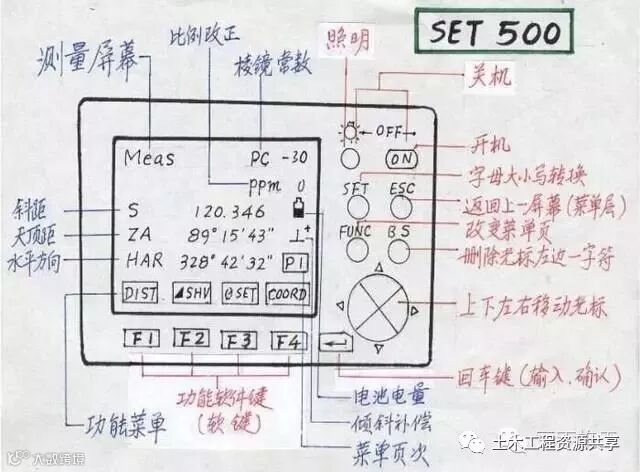 SET 500
比例改正
照明
测量屏幕
棱镜常数
关机
←OFF→
Meas
PC -30
ON
开机
ppm 0
SFT
ESC
字母大小写转换
斜距
S
120.346
返回上一屏幕(菜单层)
天顶距
ZA
89° 15′ 43″
⊥⁺
FUNC
BS
改变菜单页
水平方向
HAR
328° 42′ 32″
P1
删除光标左边一字符
DIST
◢SHV
⊖SET
COORD
上下左右移动光标
F1
F2
F3
F4
回车键(输入.确认)
功能菜单
功能软件键
(软键)
电池电量
倾斜补偿
菜单页次
土木工程资源共享
大数跨境